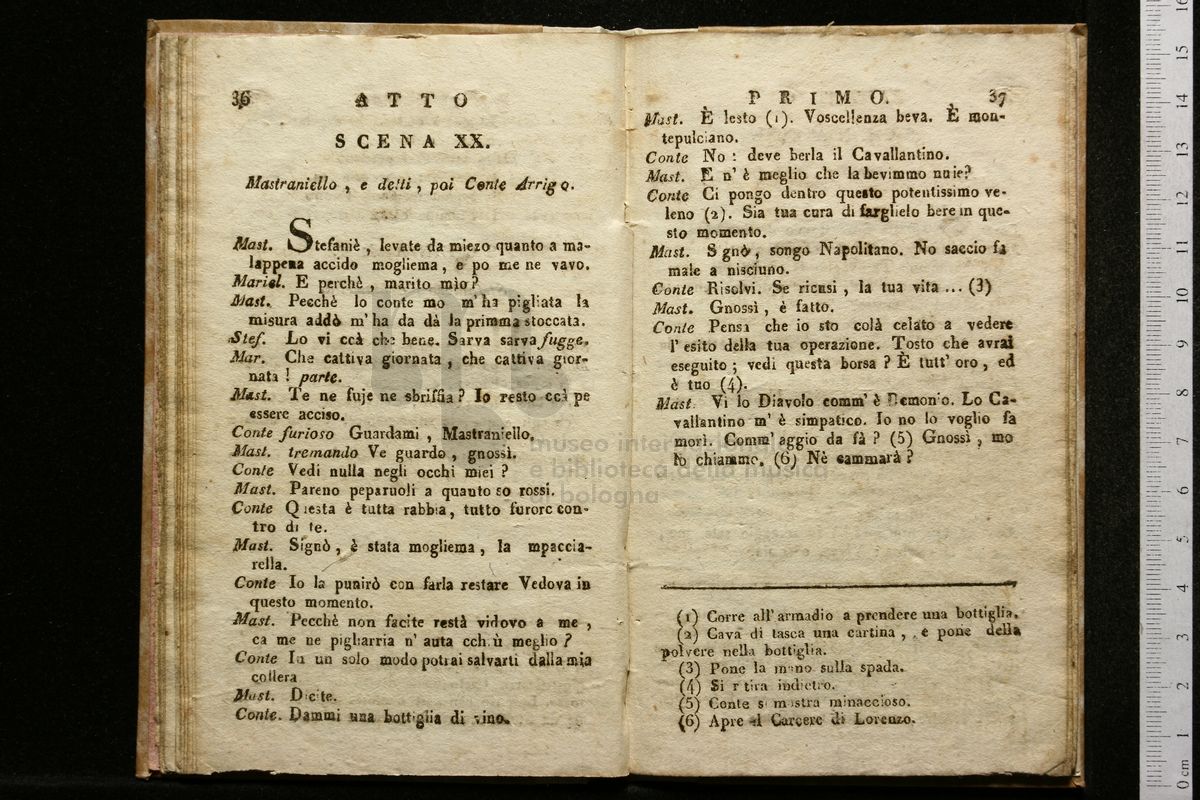 36 ATTO
SCENA XX.
Mastraniello, e detti, poi Conte Arrigo.
Mast. Stefaniè, levate da miezo quanto a ma-
lappena accido mogliema, e po me ne vavo.
Mariel. E perchè, marito mio?
Mast. Pecchè lo conte mo m'ha pigliata la
misura addò m'ha da dà la primma stoccata.
Stef. Lo vi ccà che bene. Sarva sarva fugge.
Mar. Che cattiva giornata, che cattiva gior-
nata! parte.
Mast. Te ne fuje ne sbriffia? Io resto ccà pe
essere acciso.
Conte furioso Guardami, Mastraniello.
Mast. tremando Ve guardo, gnossì.
Conte Vedi nulla negli occhi miei?
Mast. Pareno peparuoli a quanto so rossi.
Conte Questa è tutta rabbia, tutto furore con-
tro di te.
Mast. Signò, è stata mogliema, la mpaccia-
rella.
Conte Io la punirò con farla restare Vedova in
questo momento.
Mast. Pecchè non facite restà vidovo a me,
ca me ne pigliarria n'auta cchiù meglio?
Conte In un solo modo potrai salvarti dalla mia
collera
Mast. Dicite.
Conte. Dammi una bottiglia di vino.
PRIMO. 37
Mast. È lesto (1). Voscellenza beva. È mon-
tepulciano.
Conte No: deve berla il Cavallantino.
Mast. E n'è meglio che la bevimmo nuie?
Conte Ci pongo dentro questo potentissimo ve-
leno (2). Sia tua cura di farglielo bere in que-
sto momento.
Mast. Signò, songo Napolitano. No saccio fa
male a nisciuno.
Conte Risolvi. Se ricusi, la tua vita ... (3)
Mast. Gnossì, è fatto.
Conte Pensa che io sto colà celato a vedere
l'esito della tua operazione. Tosto che avrai
eseguito; vedi questa borsa? È tutt'oro, ed
è tuo (4).
Mast. Vi lo Diavolo comm'è Demonio. Lo Ca-
vallantino m'è simpatico. Io no lo voglio fa
morì. Comm'aggio da fà? (5) Gnossì, mo
lo chiammo. (6) Nè cammarà?
(1) Corre all'armadio a prendere una bottiglia.
(2) Cava di tasca una cartina, e pone della
polvere nella bottiglia.
(3) Pone la mano sulla spada.
(4) Si ritira indietro.
(5) Conte si mostra minaccioso.
(6) Apre il Carcere di Lorenzo.
museo internazionale
e biblioteca della musica
di bologna
0 cm 1 2 3 4 5 6 7 8 9 10 11 12 13 14 15 16